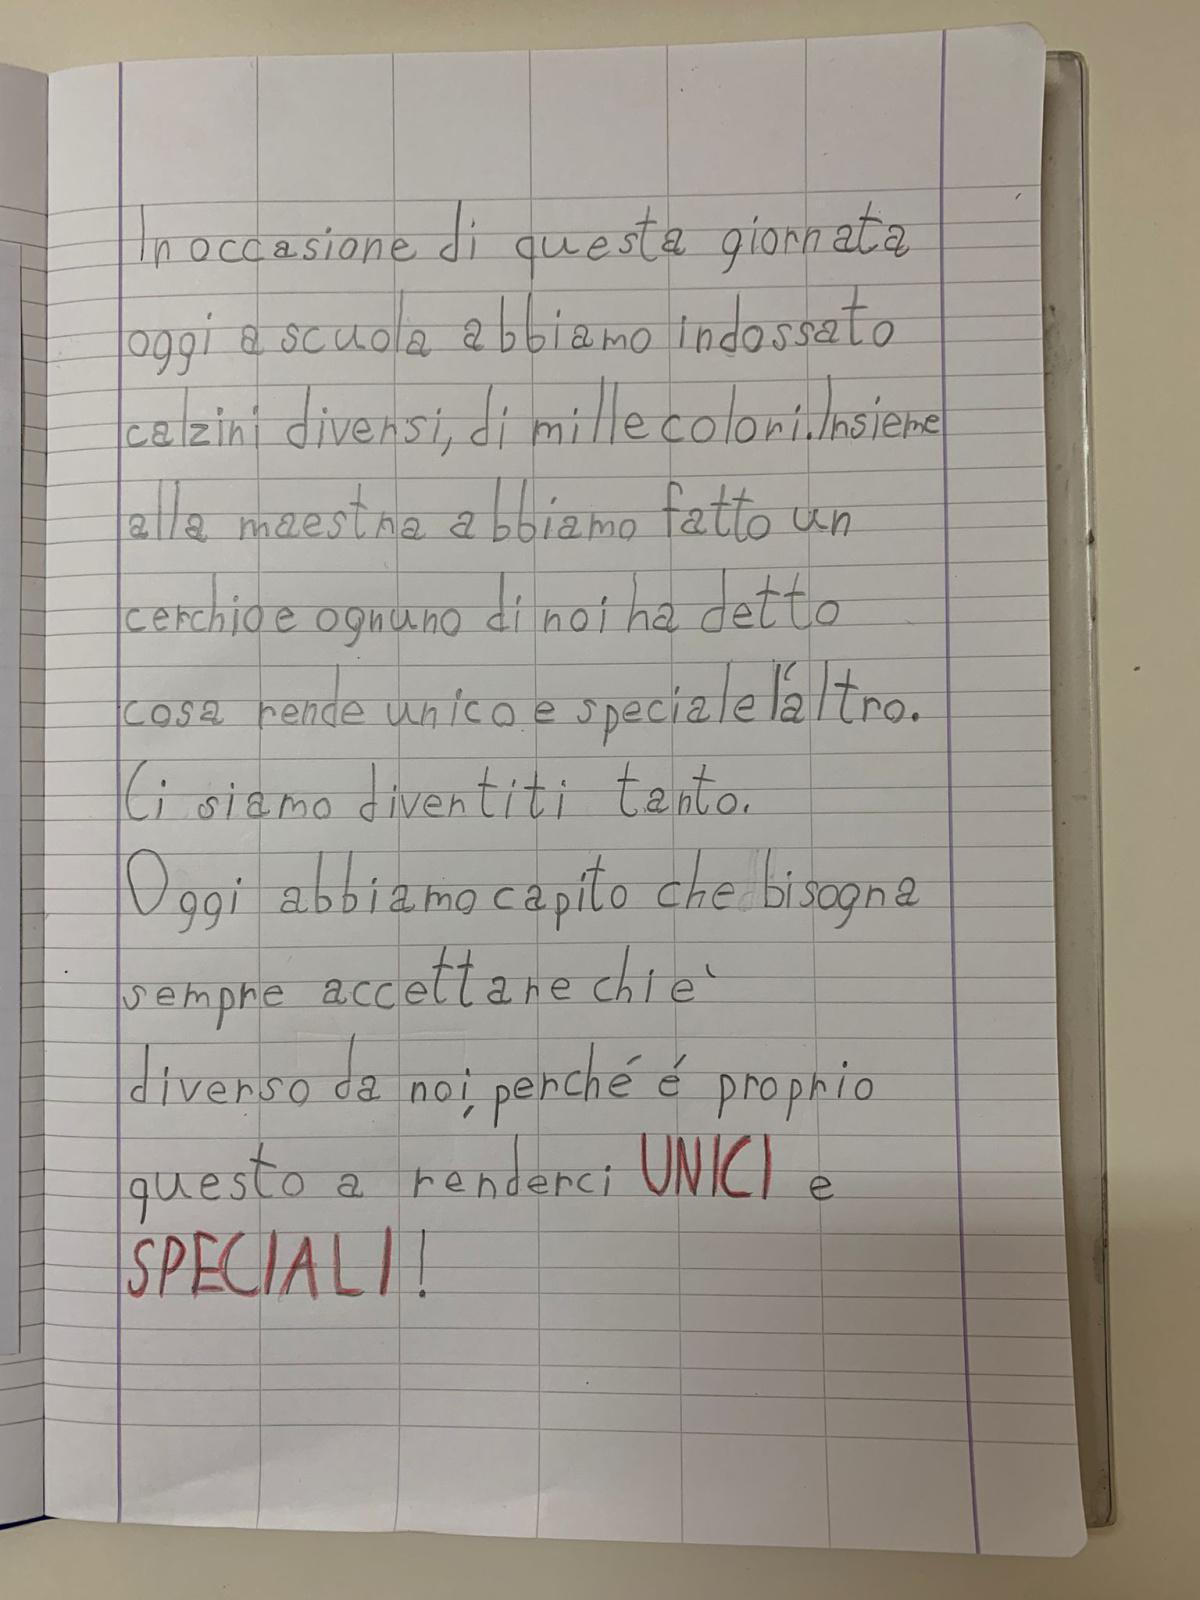 In occasione di questa giornata
oggi a scuola abbiamo indossato
calzini diversi, di mille colori. Insieme
alla maestra abbiamo fatto un
cerchio e ognuno di noi ha detto
cosa rende unico e speciale l'altro.
Ci siamo diventiti tanto.
Oggi abbiamo capito che bisogna
sempre accettare chi è
diverso da noi, perché é proprio
questo a renderci UNICI e
SPECIALI!